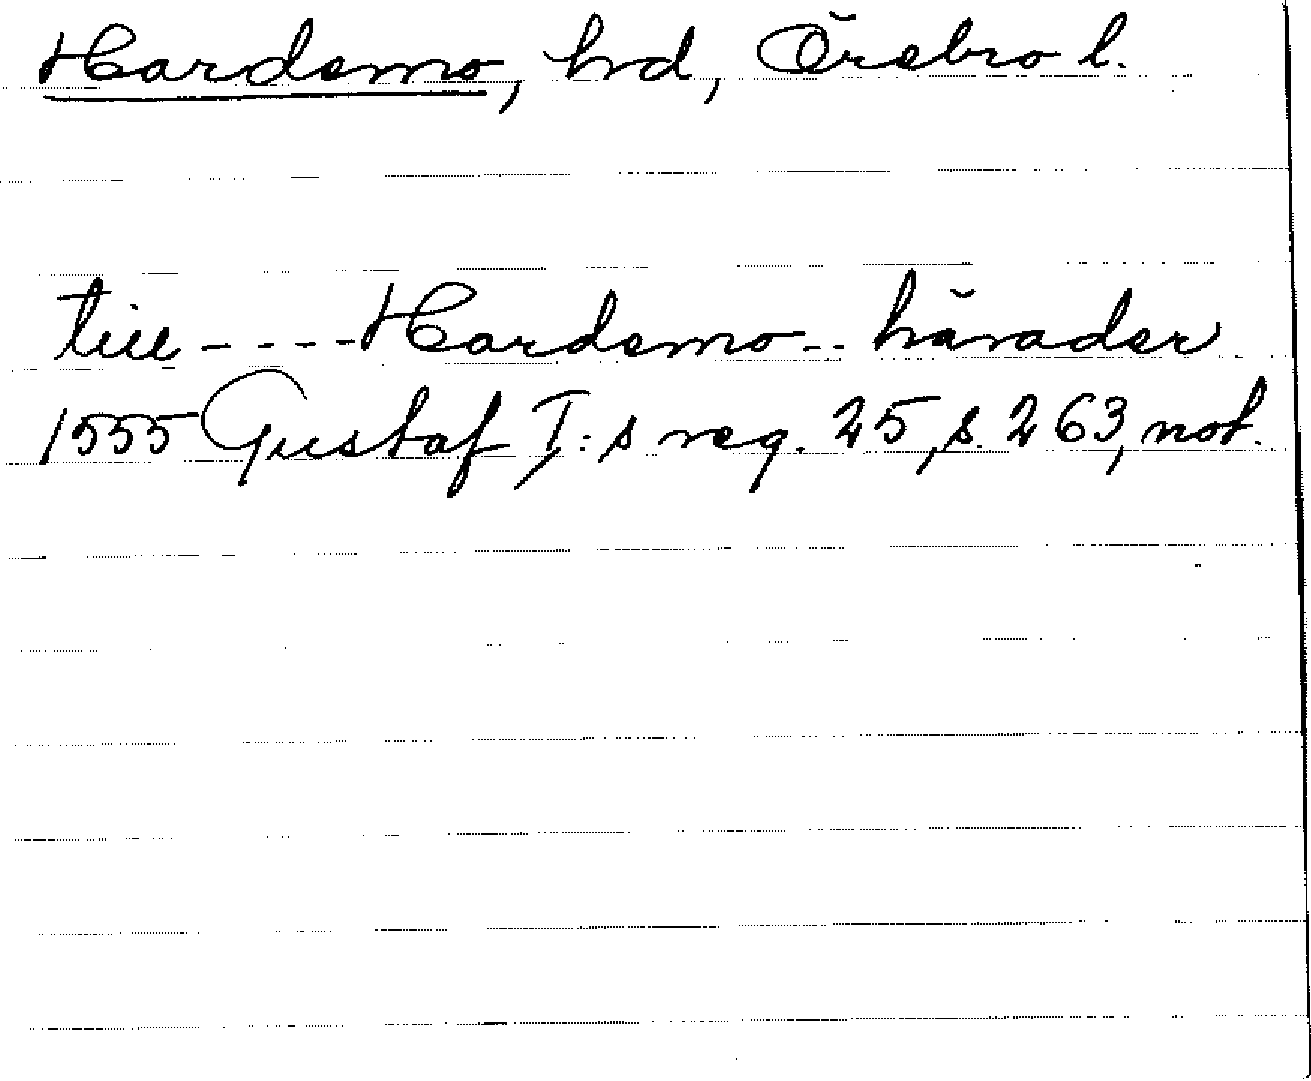 Hardemo, hrd, Örebro l.
till - - - - Hardemo - - härader
1555 Gustaf I:s reg. 25, s. 263, not.